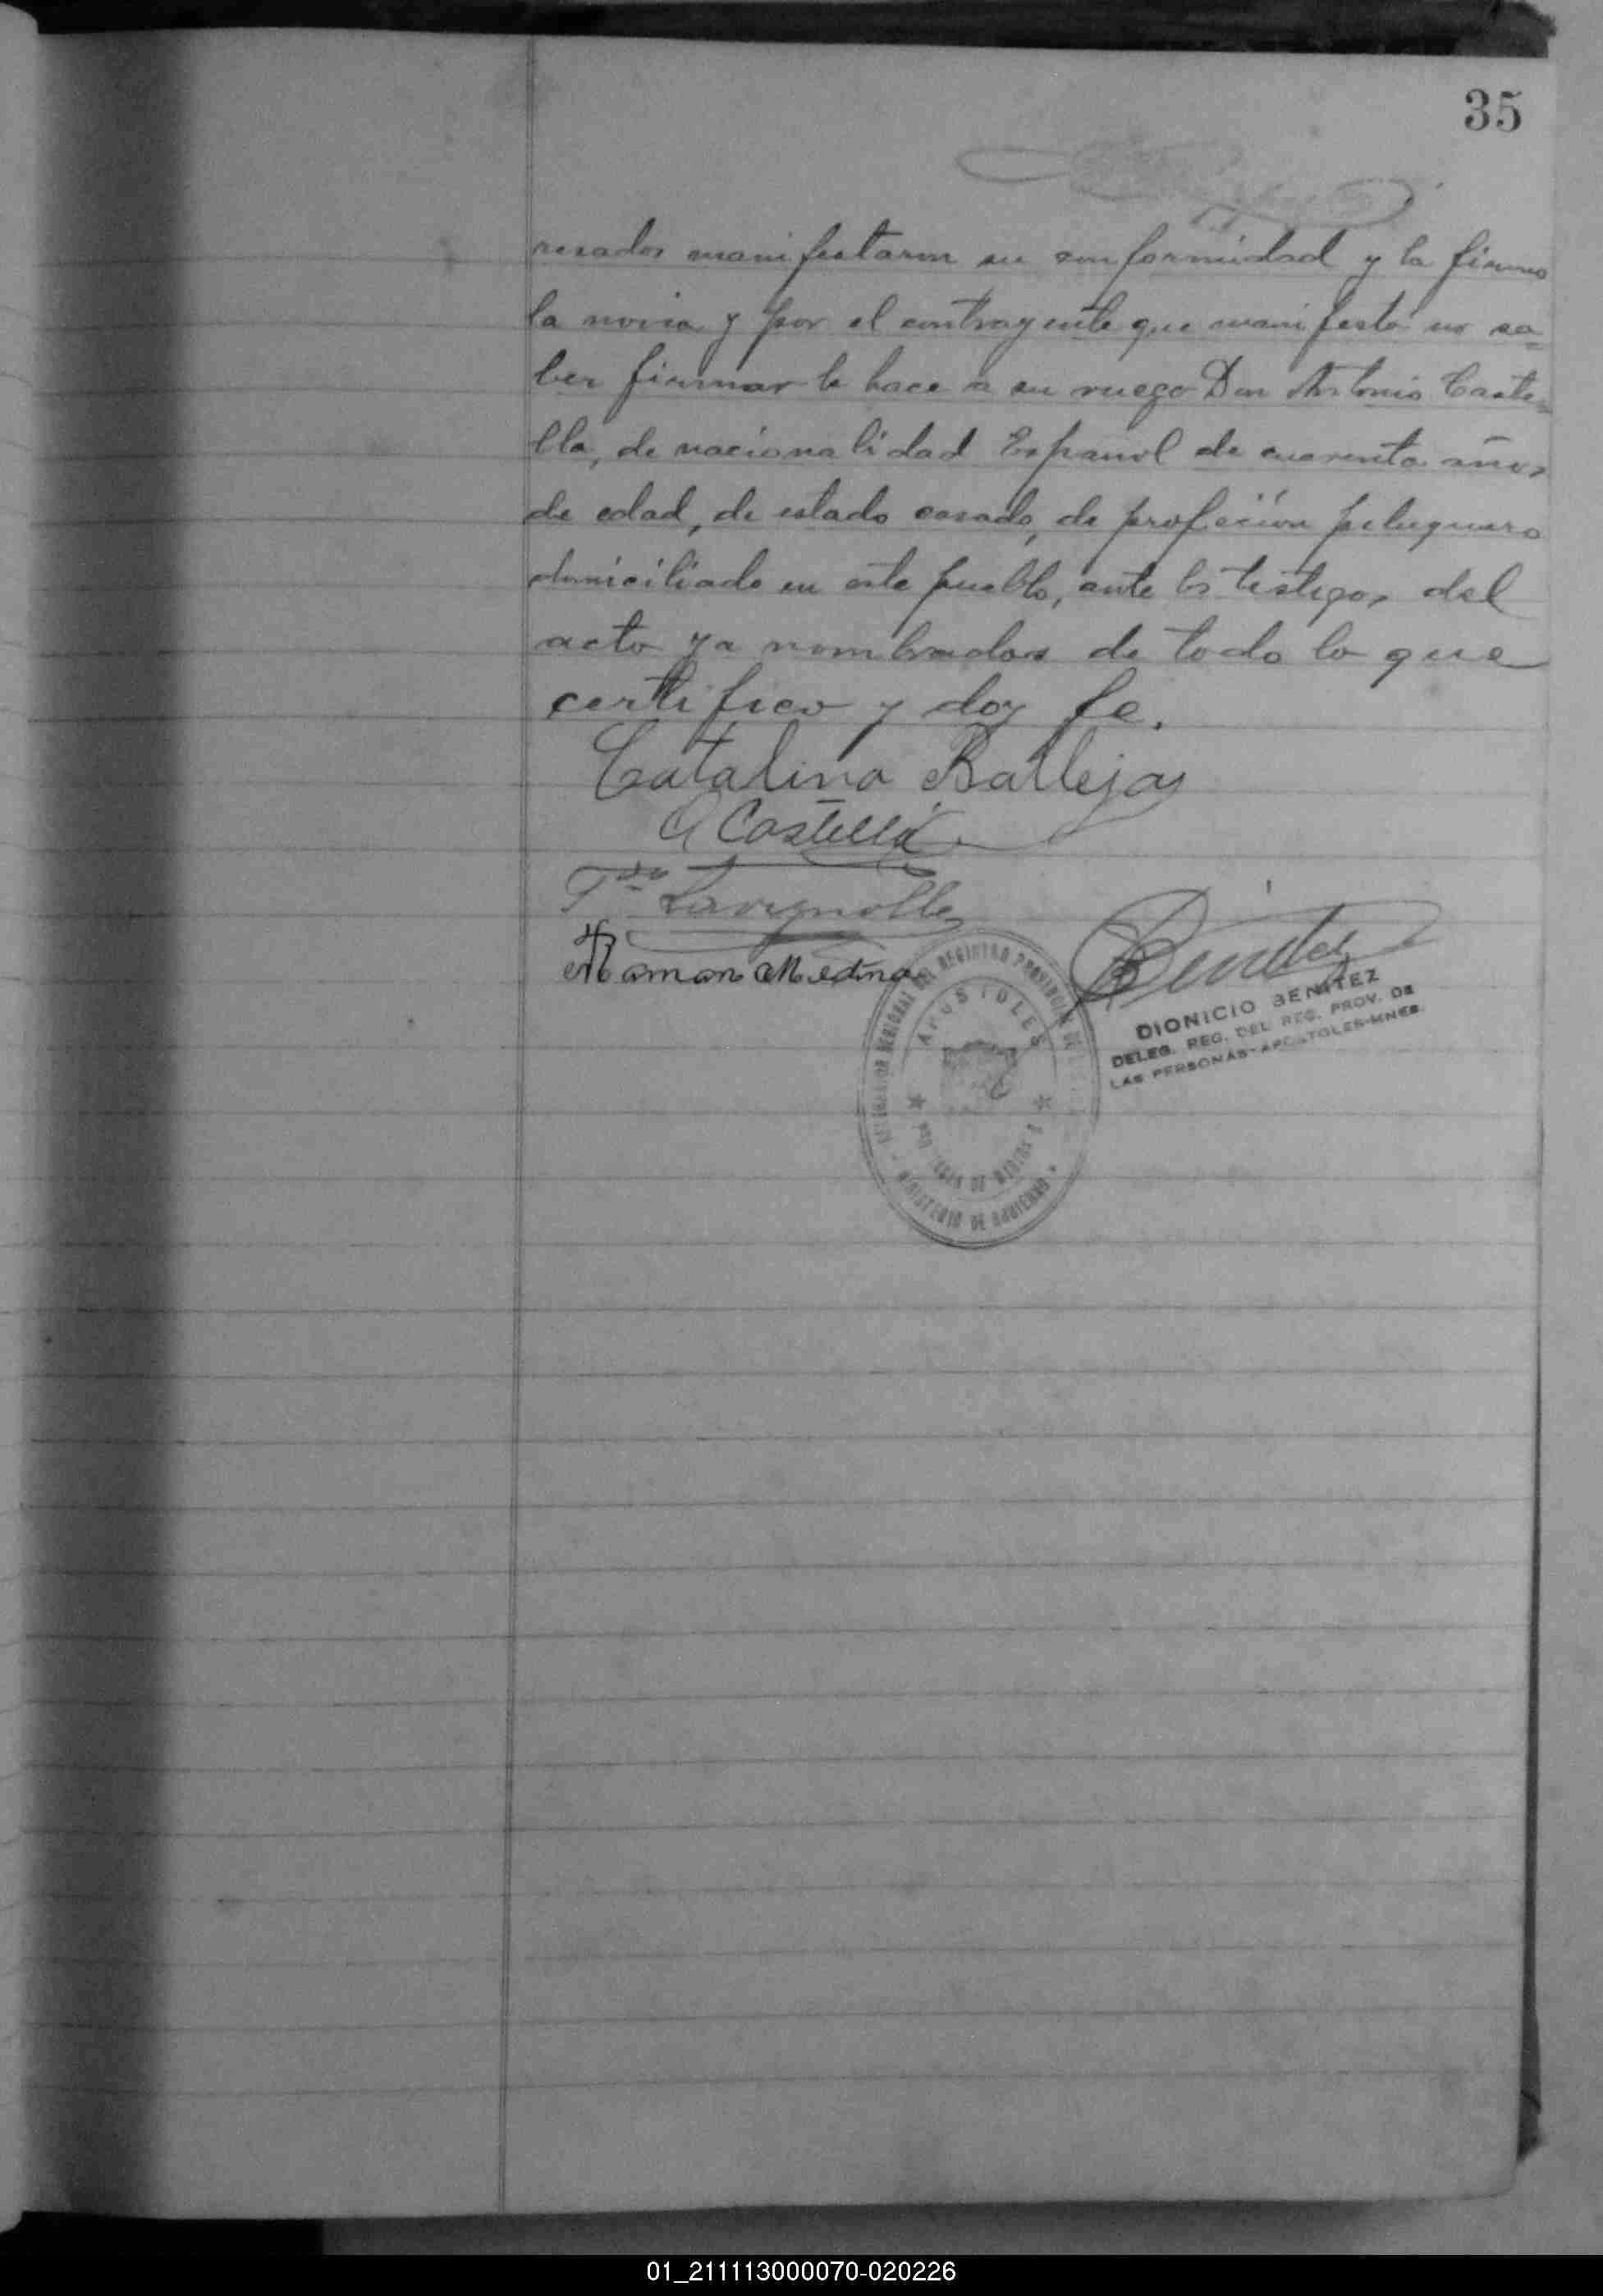 35
resados manifestaron su conformidad y la firma
la novia y por el contrayente que manifestó no sa=
ber firmar lo hace a su ruego Don Antonio Caste-
lla, de nacionalidad Español de cuarenta años
de edad, de estado casado, de profeción peluquero
domiciliado en este pueblo, ante los testigos del
acto ya nombrados de todo lo que
certifico y doy fe.
Catalina Ballejos
A Castellá
Lavignolle
Ramon Medina
Benitez
DIONICIO BENITEZ
DELEG. REG. DEL REG. PROV. DE
LAS PERSONAS-APOSTOLES-MNES.
REGIONAL DEL REGISTRO PROVINCIAL DE
APOSTOLES
MINISTERIO DE GOBIERNO
01_211113000070-020226